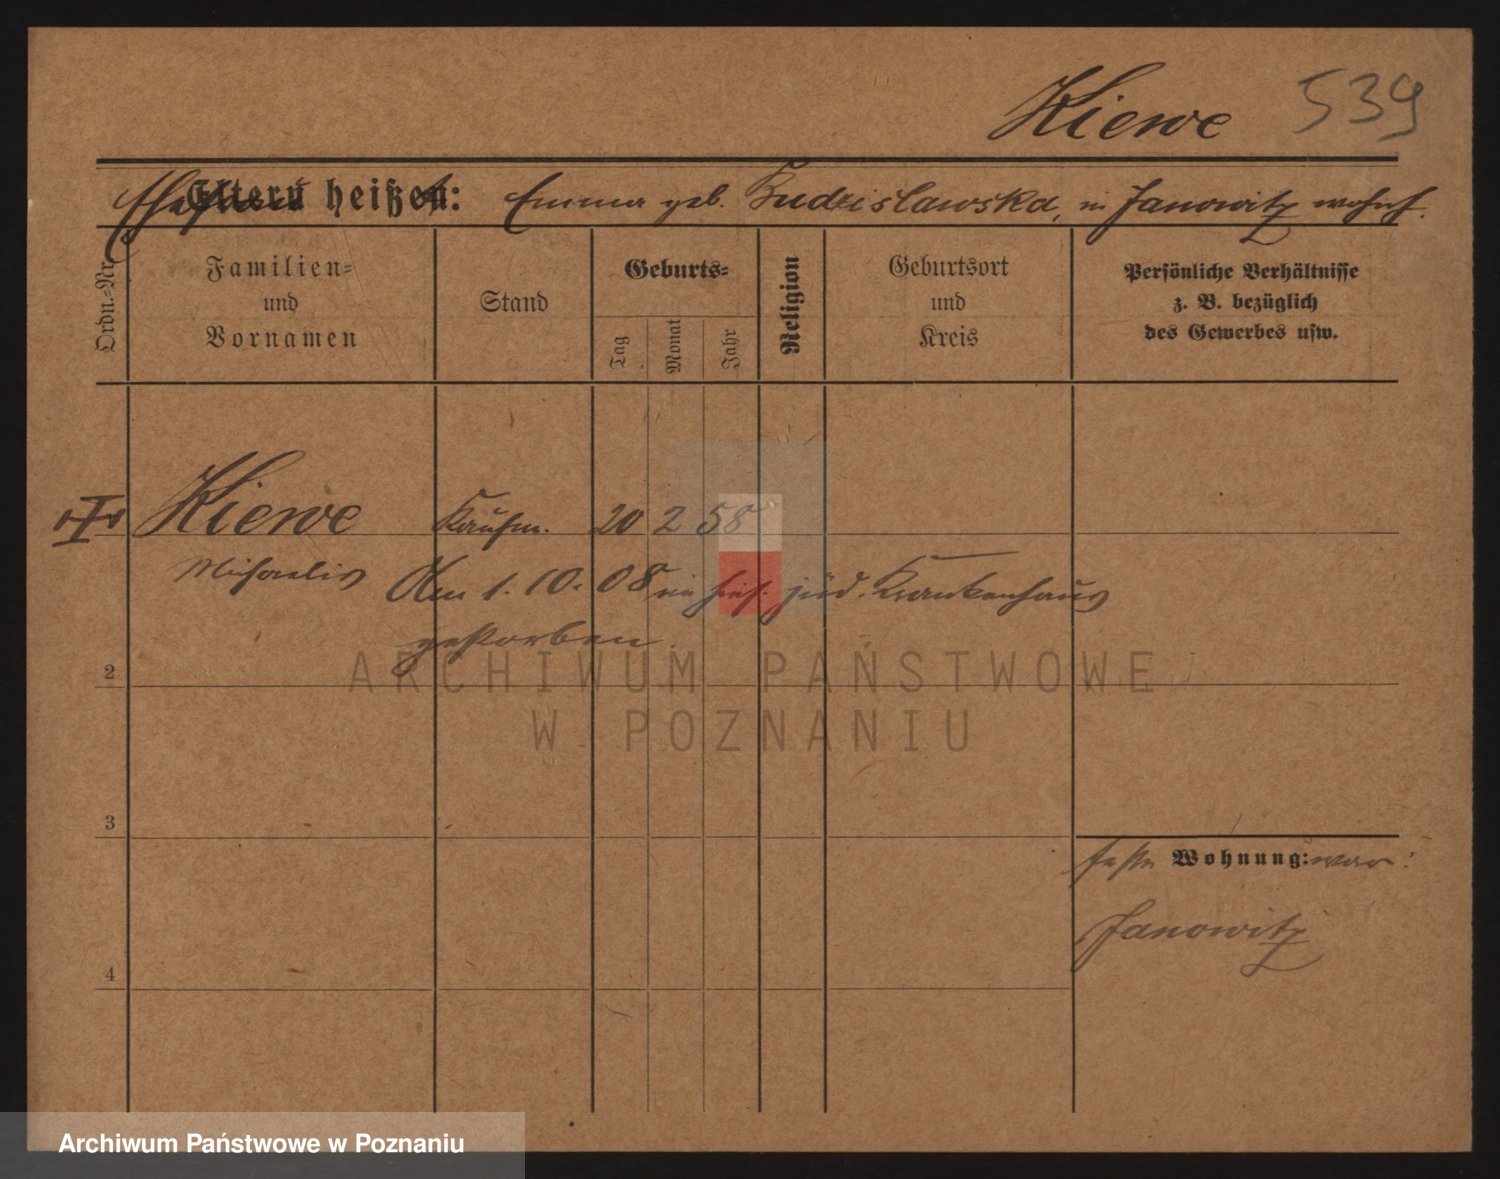 Kiewe 539
Ehefrau Eltern heißt: Emma geb. Budzislawska, in Janowitz wohnh.
Ordn.-Nr.
Familien-
und
Vornamen
Stand
Geburts-
Tag
Monat
Jahr
Religion
Geburtsort
und
Kreis
Persönliche Verhältnisse
z. B. bezüglich
des Gewerbes usw.
Kiewe Kaufm. 20 2 58
Michaelis Am 1. 10. 08 im hies. jüd. Krankenhaus
gestorben.
ARCHIWUM PAŃSTWOWE
W POZNANIU
2
3
feste Wohnung: war:
Janowitz
4
Archiwum Państwowe w Poznaniu